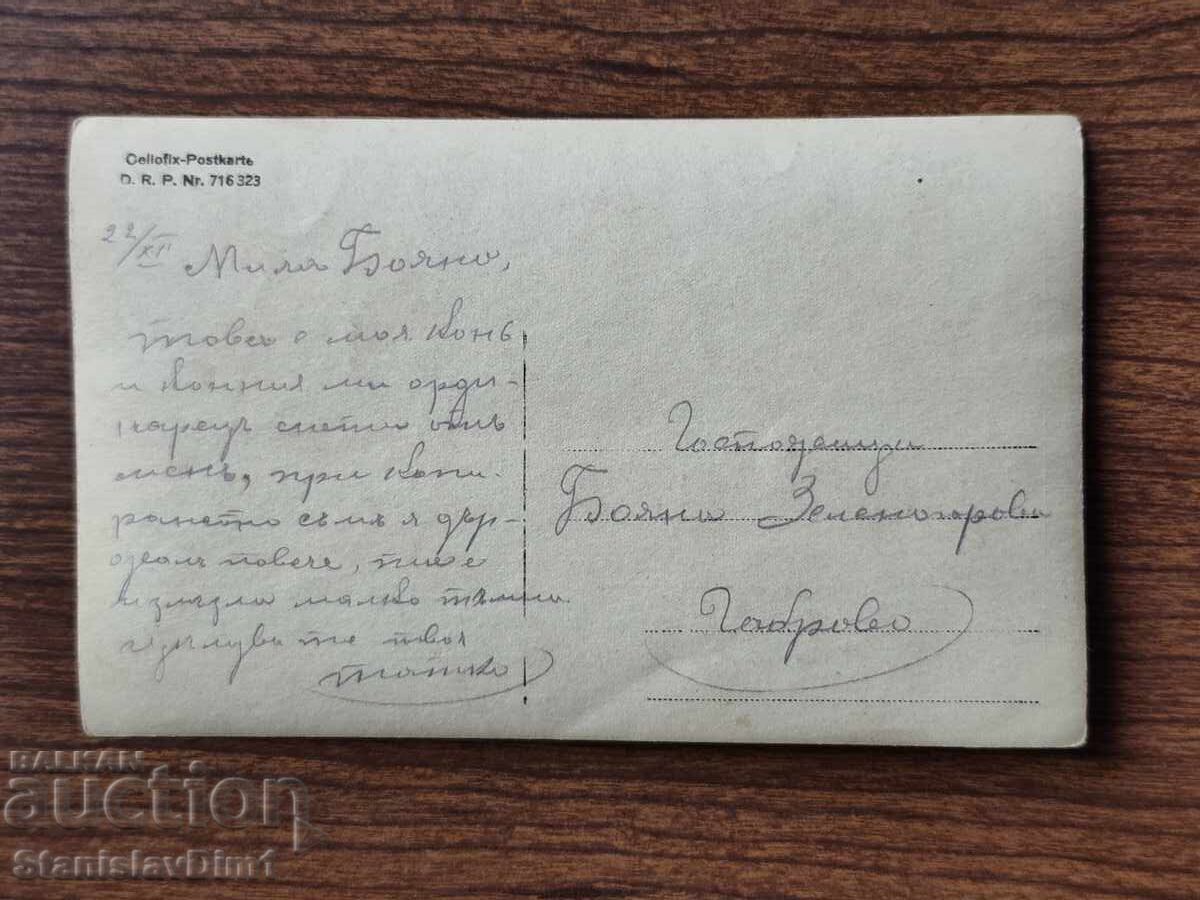 Cellofix-Postkarte
D. R. P. Nr. 716323
22/XII Мила Бояно,
това е моя конь
и конния ми орди-
нарецъ снети отъ
менъ, при копи-
рането съмъ я дър-
жалъ повече, та е
излязла малко тъмна
Цѣлува те твоя
татко
Госпожици
Бояна Зеленогорова
Габрово
BALKAN
auction
StanislavDim1